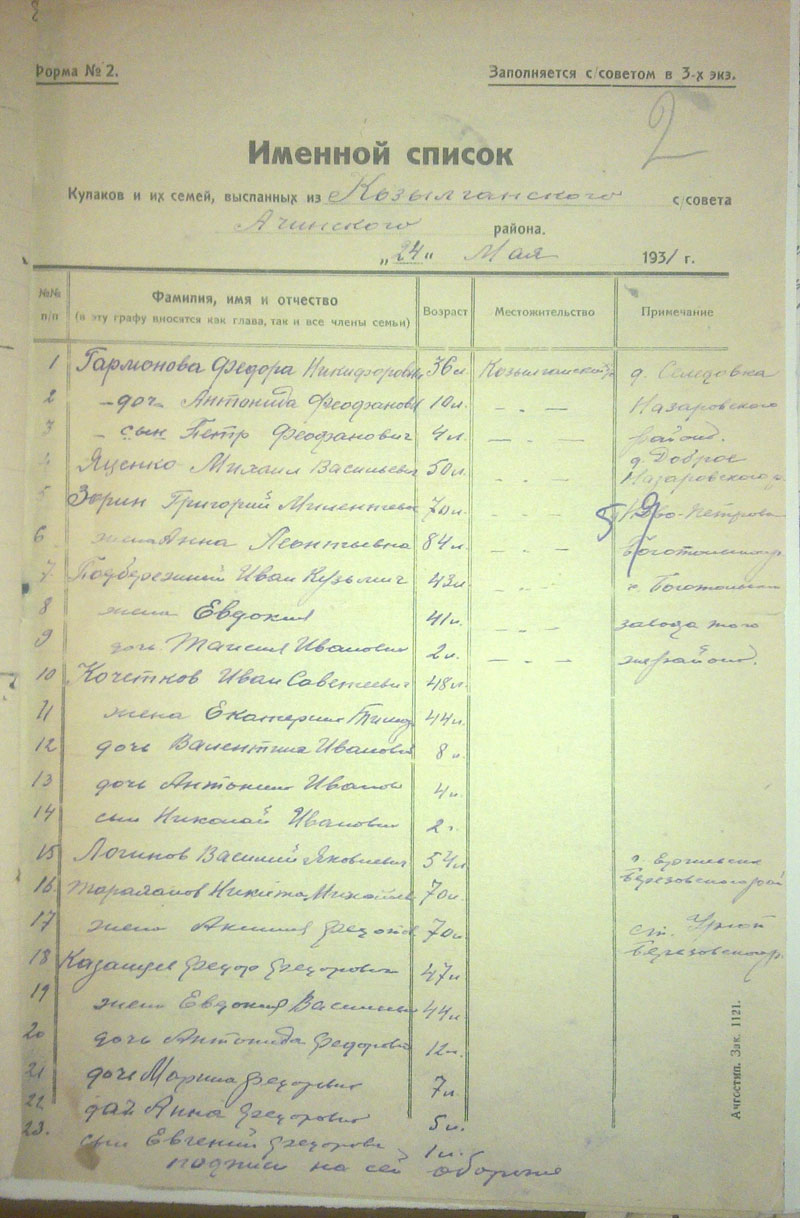 Форма № 2.
Заполняется с/советом в 3-х экз.
2
Именной список
Кулаков и их семей, высланных из Козылганского с/совета
Ачинского района.
„24" Мая 1931 г.
№№ п/п
Фамилия, имя и отчество
(в эту графу вносятся как глава, так и все члены семьи)
Возраст
Местожительство
Примечание
1 Гармонова Федора Никифоровн 36 л. д. Селедовка
2 - доч Антонида Феофановн 10 л. - „ - Назаровского
3 - сын Петр Феофанович 4 л. - „ - район.
4 Яценко Михаил Васильевич 50 л. - „ - д. Доброе Назаровского р.
5 Зорин Григорий 70 л. - „ - Ново-Петровка
6 жена Анна Леонтьевна 84 л. - „ -
7 Подбережний Иван Кузьмич 43 л. - „ -
8 жена Евдокия 41 л. - „ - завода того
9 дочь Таисия Ивановн 2 л. - „ - же район.
10 Кочетков Иван 48 л.
11 жена Екатерина 44 л.
12 дочь Валентина Ивановн 8 л.
13 дочь Антонина Иванов 4 л.
14 сын Николай Иванович 2 г.
15 Логинов Василий Яковлевич 54 л. Березовского рай
16 Никита Михайлов 70 л.
17 жена Федотов 70 л. ст. Урюп Березовского р.
18 Казанцев Федор Федорович 47 л.
19 жена Евдокия Васильевн 44 л.
20 дочь Антонида Федоровн 12 л.
21 дочь Марина Федоровн 7 л.
22 Анна Федоровн 5 л.
23. сын Евгений Федоров 1 л.
подписи на сей обороте
Ачгостип. Зак. 1121.